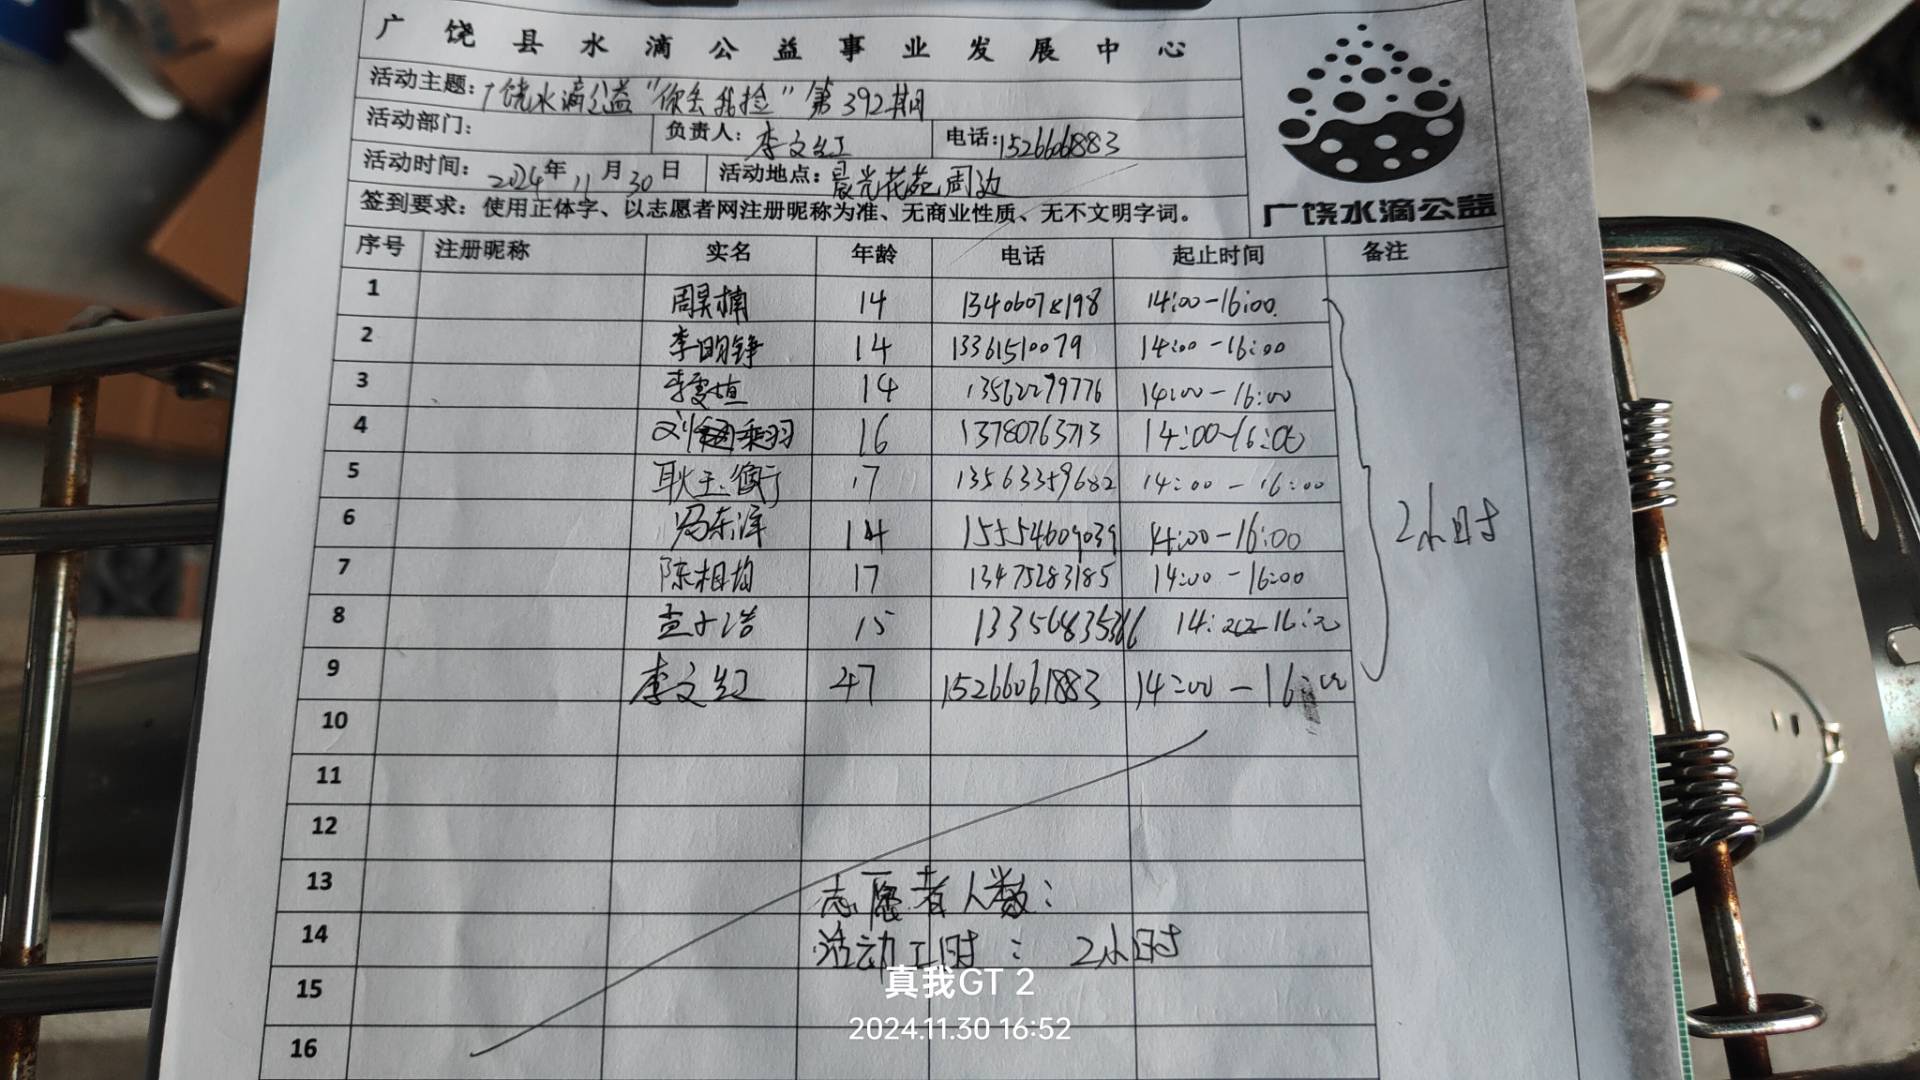 广饶县水滴公益事业发展中心
活动主题:广饶水滴公益"你丢我捡"第392期
活动部门: 负责人:李文红 电话:15266061883
活动时间:2024年11月30日 活动地点:晨光花苑周边
签到要求:使用正体字、以志愿者网注册昵称为准、无商业性质、无不文明字词。
广饶水滴公益
序号 注册昵称 实名 年龄 电话 起止时间 备注
1 周昊楠 14 13406078198 14:00-16:00
2 李明铮 14 13361510079 14:00-16:00
3 李雯垣 14 13562279776 14:00-16:00
4 刘乘羽 16 13780763713 14:00-16:00
5 耿玉衡 17 13563359682 14:00-16:00
6 冯东泽 14 15554609039 14:00-16:00
7 陈相均 17 13475283185 14:00-16:00
8 15 14:00-16:00
2小时
9 李文红 47 15266061883 14:00-16:00
10
11
12
13 志愿者人数:
14 活动工时:2小时
15
16
真我GT 2
2024.11.30 16:52